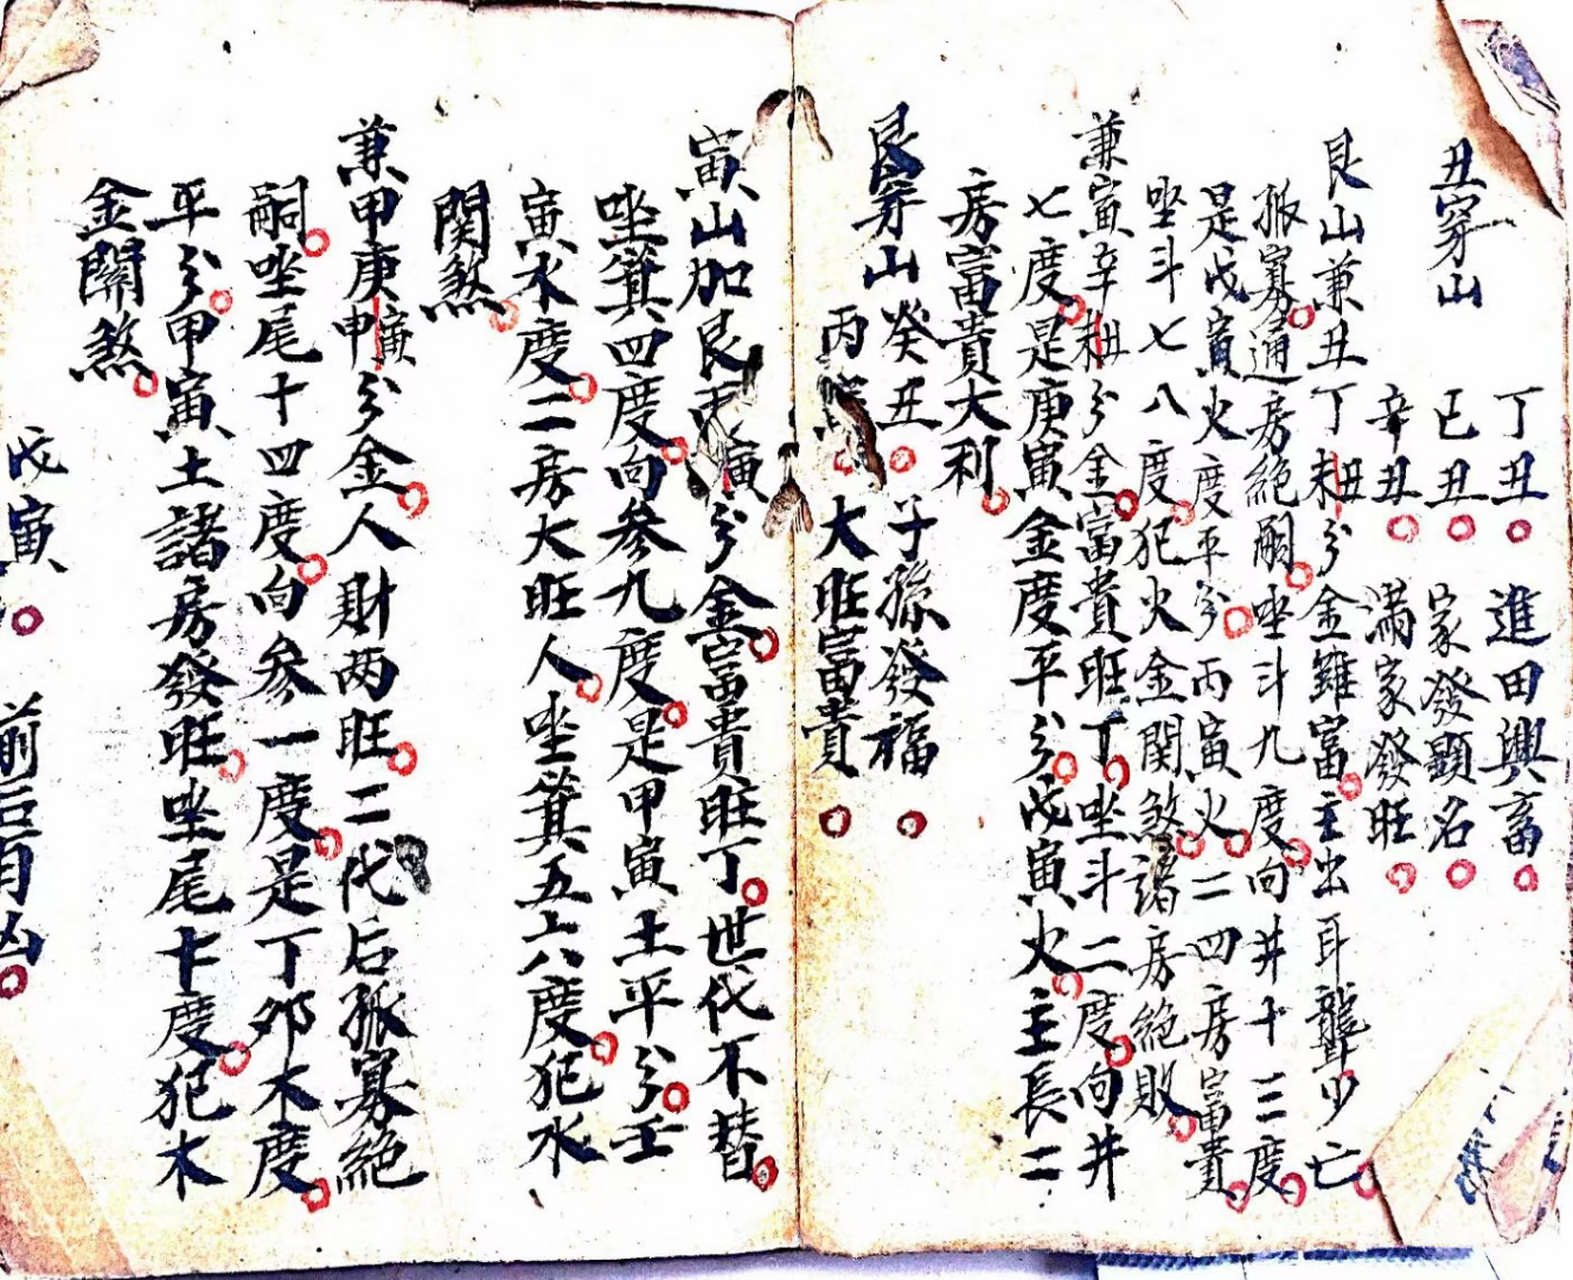 丑穿山
丁丑 進田興畜
己丑 家發顯名
辛丑 滿家發旺
艮山兼丑丁丑未分金雖富主出耳聾少亡
孤寡通房絕嗣坐斗九度向井十三度
是戊寅火度平分丙寅火二四房富貴
坐斗七八度犯火金関煞諸房絕敗
兼寅辛丑未分金富貴旺丁坐斗二度向井
七度是庚寅金度平分戊寅火主長二
房富貴大利
艮寅穿山
癸丑 子孫發福
丙寅 大旺富貴
寅山加艮丙寅分金富貴旺丁世代不替
坐箕四度向参九度是甲寅土平分壬
寅水度二房大旺人坐箕五六八度犯水
関煞
兼甲庚寅申分金人財两旺二代后孤寡絕
嗣坐尾十四度向参一度是丁夘木度
平分甲寅土諸房發旺坐尾十度犯木
金關煞
戊寅 前后有凶